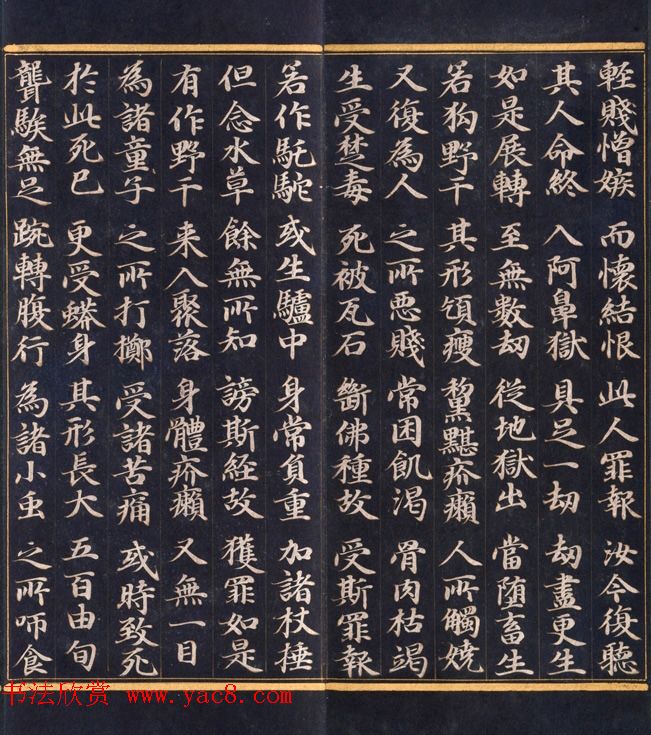 輕賤憎嫉 而懷結恨 此人罪報 汝今復聽
其人命終 入阿鼻獄 具足一劫 劫盡更生
如是展轉 至無數劫 從地獄出 當墮畜生
若狗野干 其形頄瘦 黧黮疥癩 人所觸嬈
又復為人 之所惡賤 常困飢渴 骨肉枯竭
生受楚毒 死被瓦石 斷佛種故 受斯罪報
若作馲駝 或生驢中 身常負重 加諸杖捶
但念水草 餘無所知 謗斯經故 獲罪如是
有作野干 來入聚落 身體疥癩 又無一目
為諸童子 之所打擲 受諸苦痛 或時致死
於此死已 更受蟒身 其形長大 五百由旬
聾騃無足 踠轉腹行 為諸小虫 之所唼食
书法欣赏 www.yac8.com